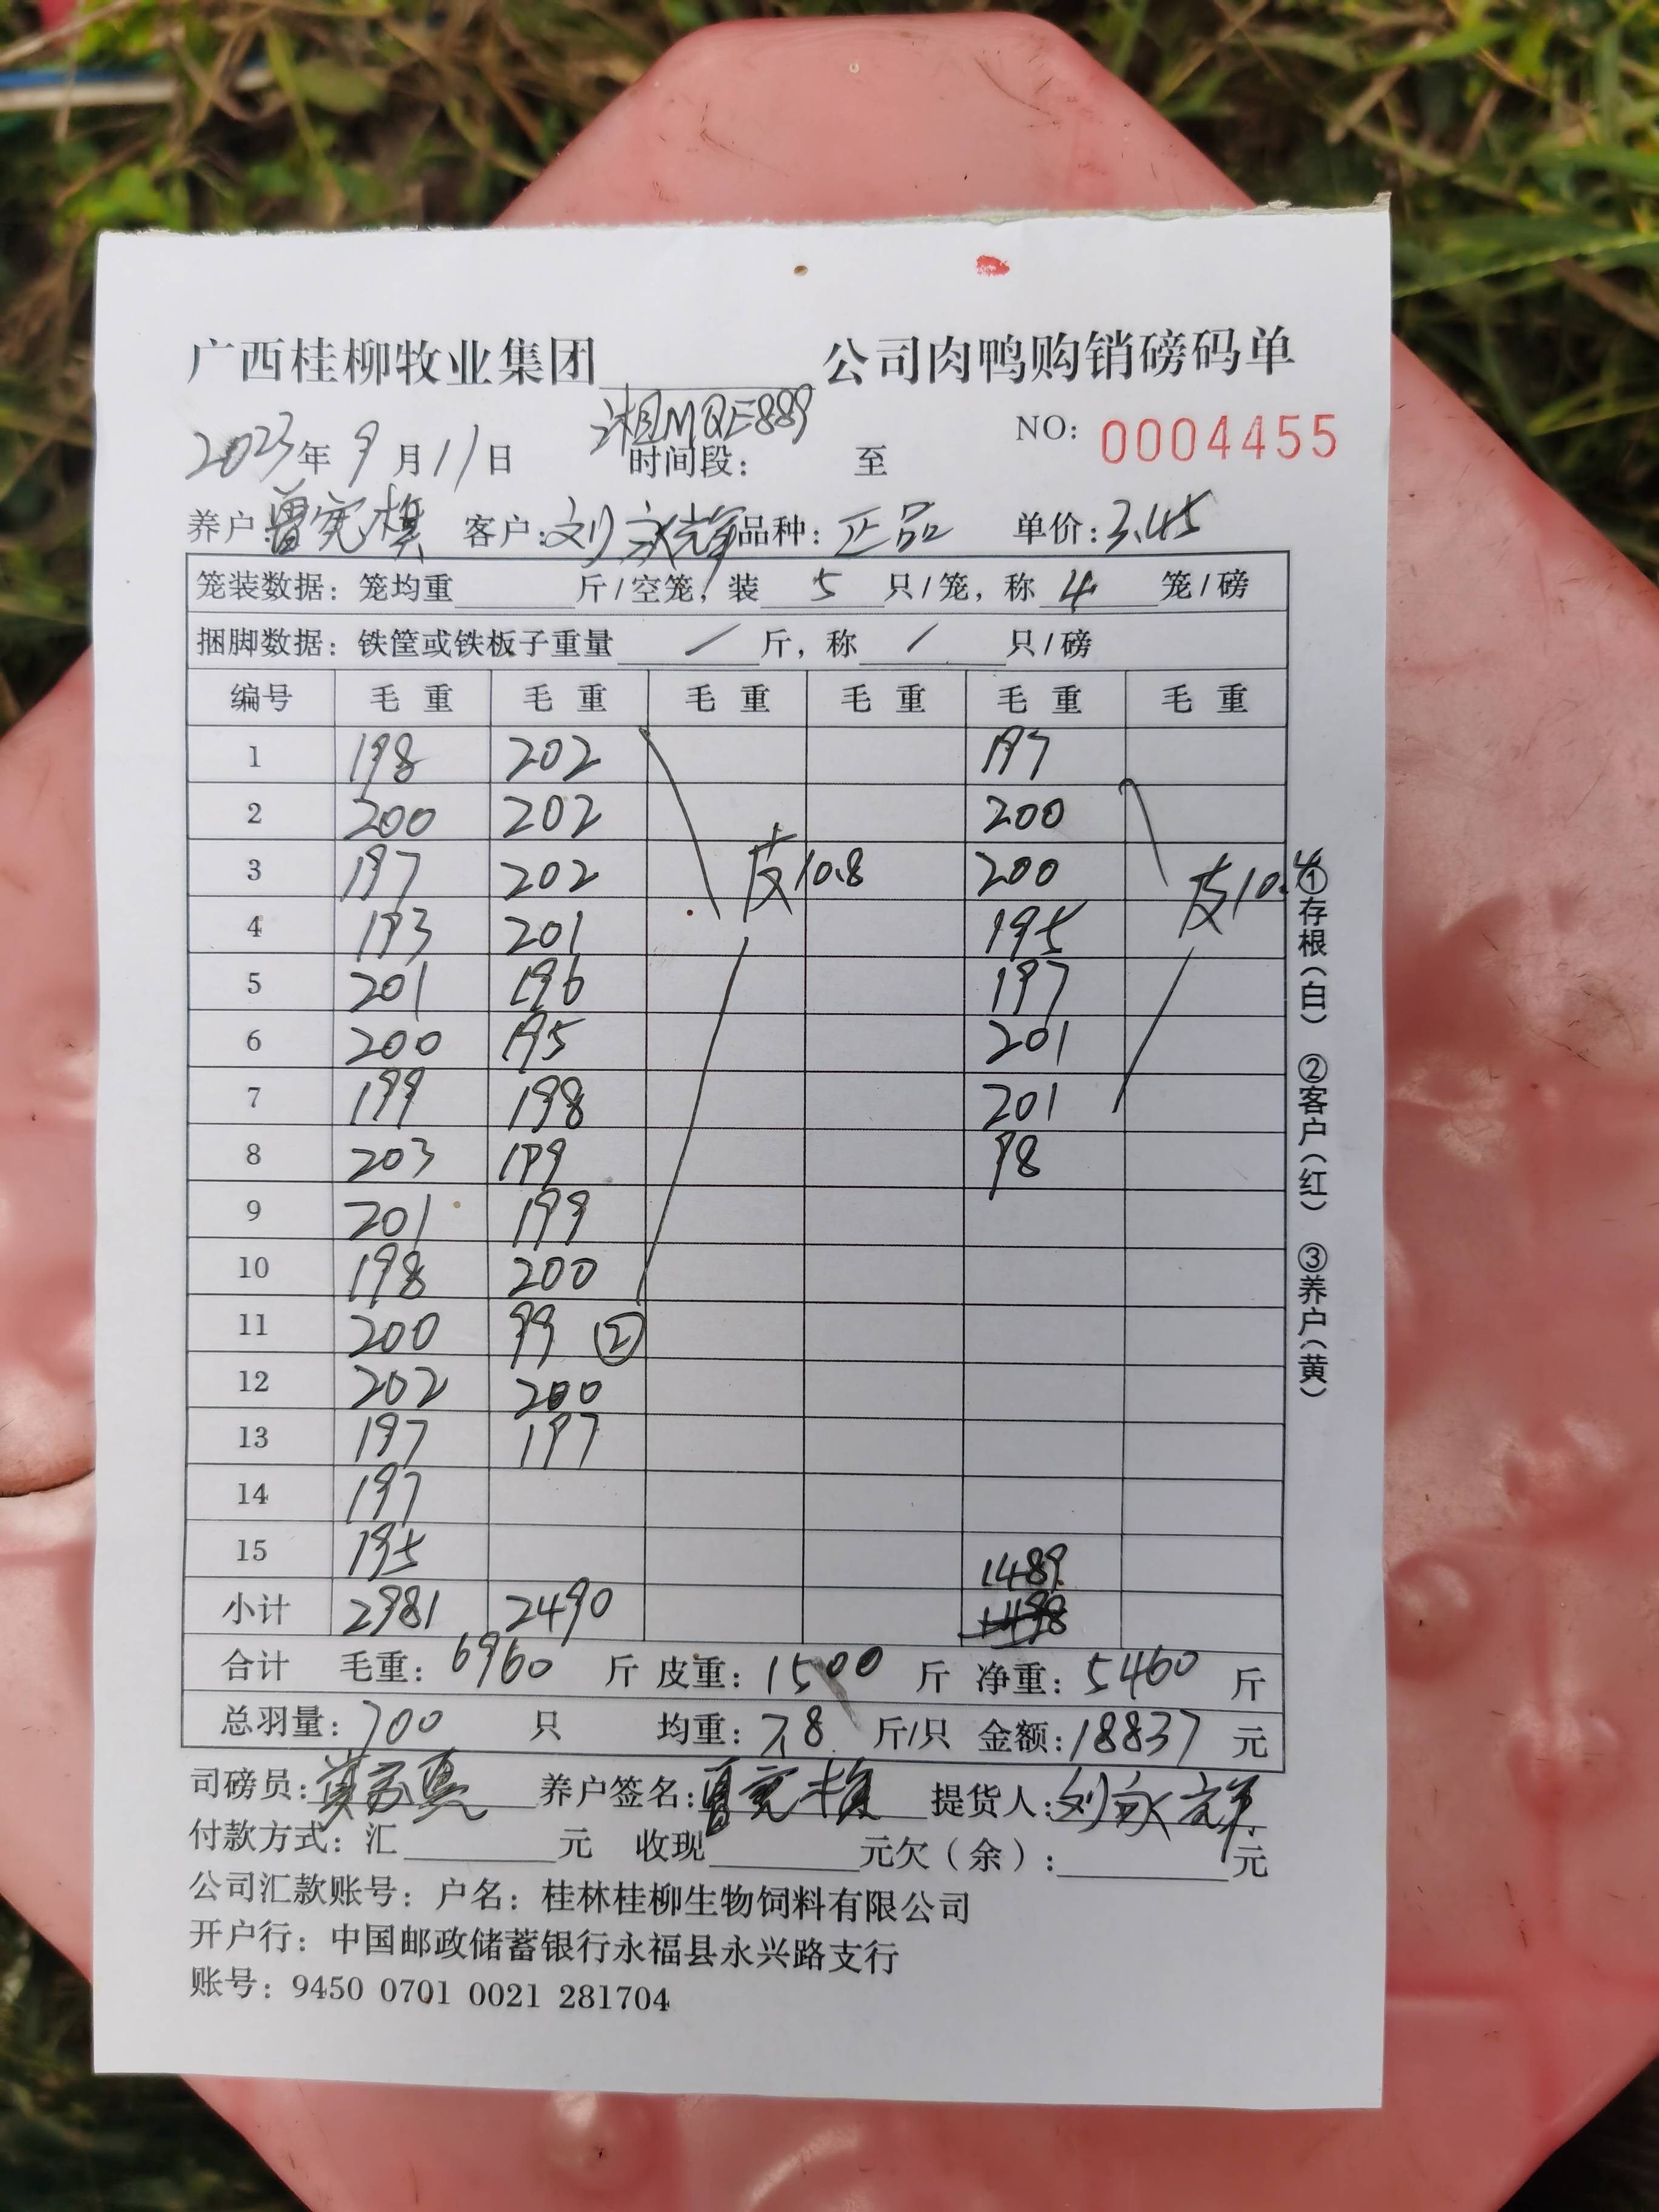 广西桂柳牧业集团 公司肉鸭购销磅码单
湘MQE889
2023年9月11日 时间段： 至 NO：0004455
养户：曾宪模 客户：刘永祥 品种：正品 单价：3.45
笼装数据：笼均重 斤/空笼，装 5 只/笼，称 4 笼/磅
捆脚数据：铁筐或铁板子重量 / 斤，称 / 只/磅
编号 毛重 毛重 毛重 毛重 毛重 毛重
1 198 202 197
2 200 202 200
3 197 202 皮10.8 200 皮10.4
4 193 201 195
5 201 196 197
6 200 195 201
7 199 198 201
8 203 199 98
9 201 199
10 198 200
11 200 99 ②
12 202 200
13 197 197
14 197
15 195 1489
小计 2981 2490 1498
合计 毛重：6960 斤 皮重：1500 斤 净重：5460 斤
总羽量：700 只 均重：7.8 斤/只 金额：18837 元
司磅员： 养户签名：曾宪模 提货人：刘永祥
付款方式：汇 元 收现 元欠（余）： 元
公司汇款账号：户名：桂林桂柳生物饲料有限公司
开户行：中国邮政储蓄银行永福县永兴路支行
账号：9450 0701 0021 281704
①存根（白） ②客户（红） ③养户（黄）